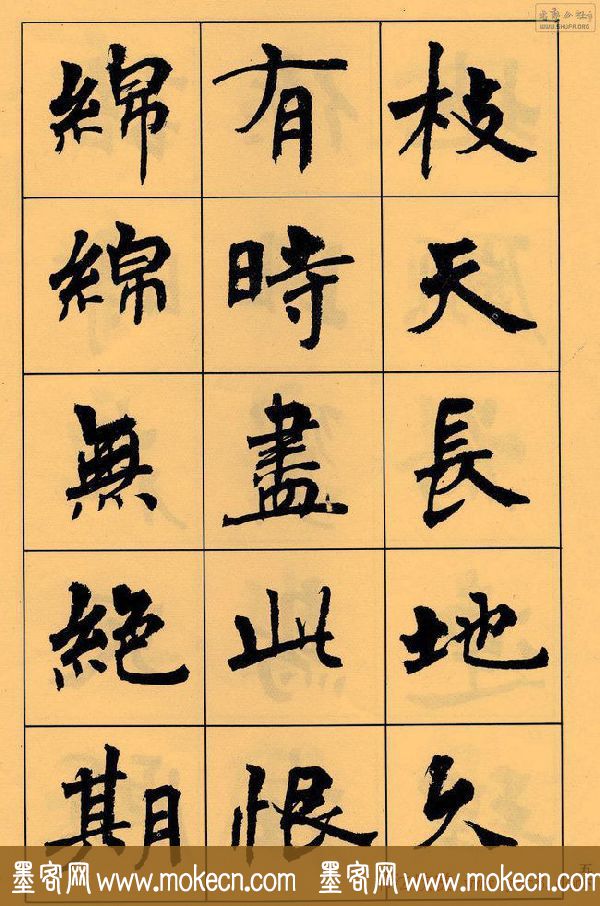 枝天長地久
有時盡此恨
綿綿無絕期
墨客网 www.mokecn.com 墨客网 www.mokecn.com
WWW.SHUFR.ORG